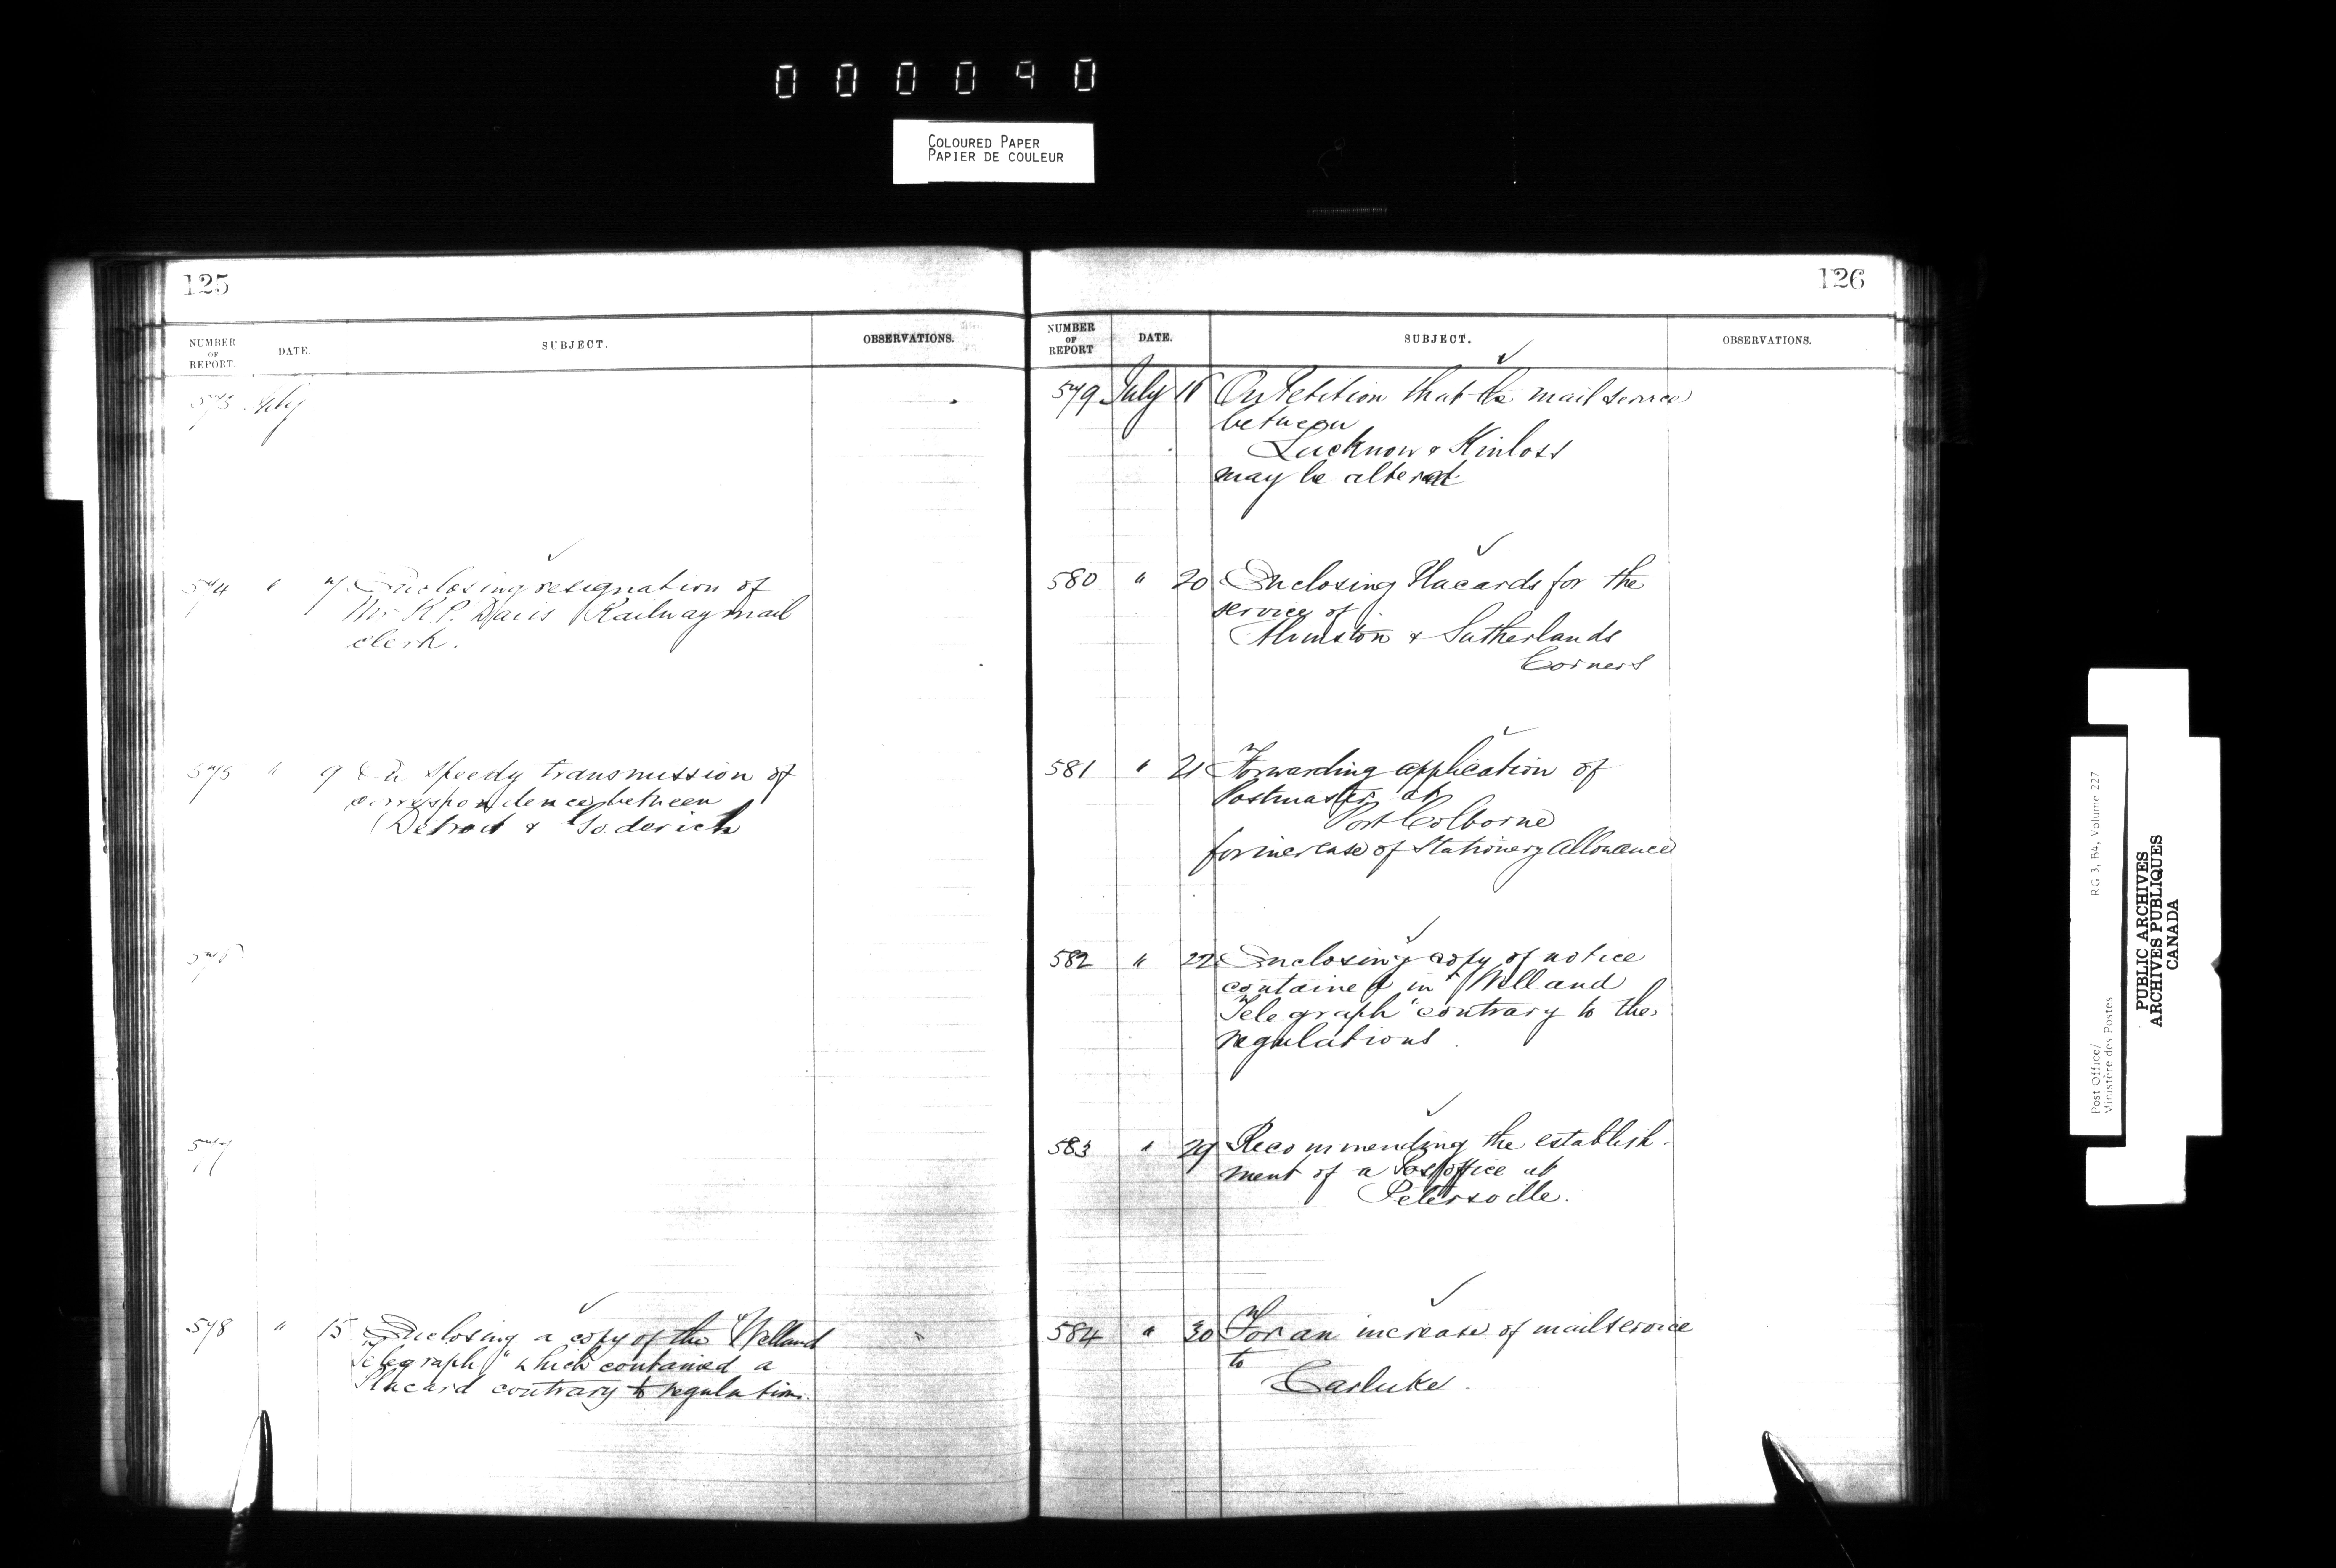 000090
COLOURED PAPER
PAPIER DE COULEUR
125
NUMBER OF REPORT.
DATE.
SUBJECT.
OBSERVATIONS.
573 July
574 " 7 Enclosing resignation of
Mr K.P. Davis Railway mail
clerk.
575 " 9 speedy transmission of
correspondence between
Detroit & Goderich
576
577
578 " 15 Enclosing a copy of the "Welland
Telegraph" which contained a
Placard contrary to regulations.
126
NUMBER OF REPORT
DATE.
SUBJECT.
OBSERVATIONS.
579 July 16 On Petition that the mail service
between
Lucknow & Kinloss
may be altered
580 " 20 Enclosing Placards for the
service of
& Sutherlands
Corners
581 " 21 Forwarding application of
Postmaster at
Port Colborne
for increase of Stationery Allowance
582 " 22 Enclosing copy of notice
contained in "Welland
Telegraph" contrary to the
regulations.
583 " 29 Recommending the establish-
ment of a Post office at
Petersville.
584 " 30 For an increase of mail service
to
Carluke.
Post Office/
Ministère des Postes
RG 3, B4, Volume 227
PUBLIC ARCHIVES
ARCHIVES PUBLIQUES
CANADA